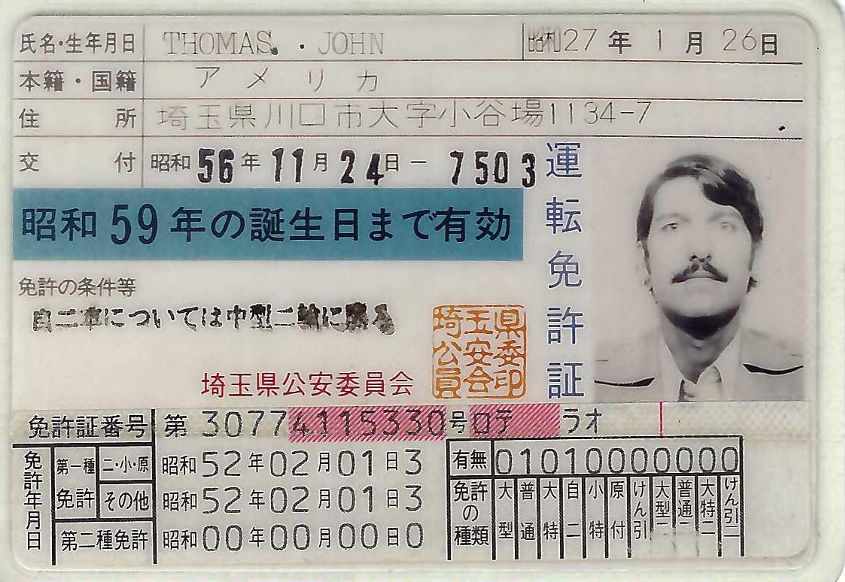 氏名・生年月日 THOMAS.・JOHN 昭和27年1月26日
本籍・国籍 アメリカ
住所 埼玉県川口市大字小谷場1134-7
交付 昭和56年11月24日-7503
昭和59年の誕生日まで有効
運転免許証
免許の条件等
自二車については中型二輪に限る
埼玉県公安委員会
埼玉県公安委員会印
免許証番号 第307741153​30号ロテ ラオ
免許年月日
第一種免許 二・小・原 昭和52年02月01日3
その他 昭和52年02月01日3
第二種免許 昭和00年00月00日0
有無 01010000000
免許の種類 大型 普通 大特 自二 小特 原付 けん引 大型二 普通二 大特二 けん引二